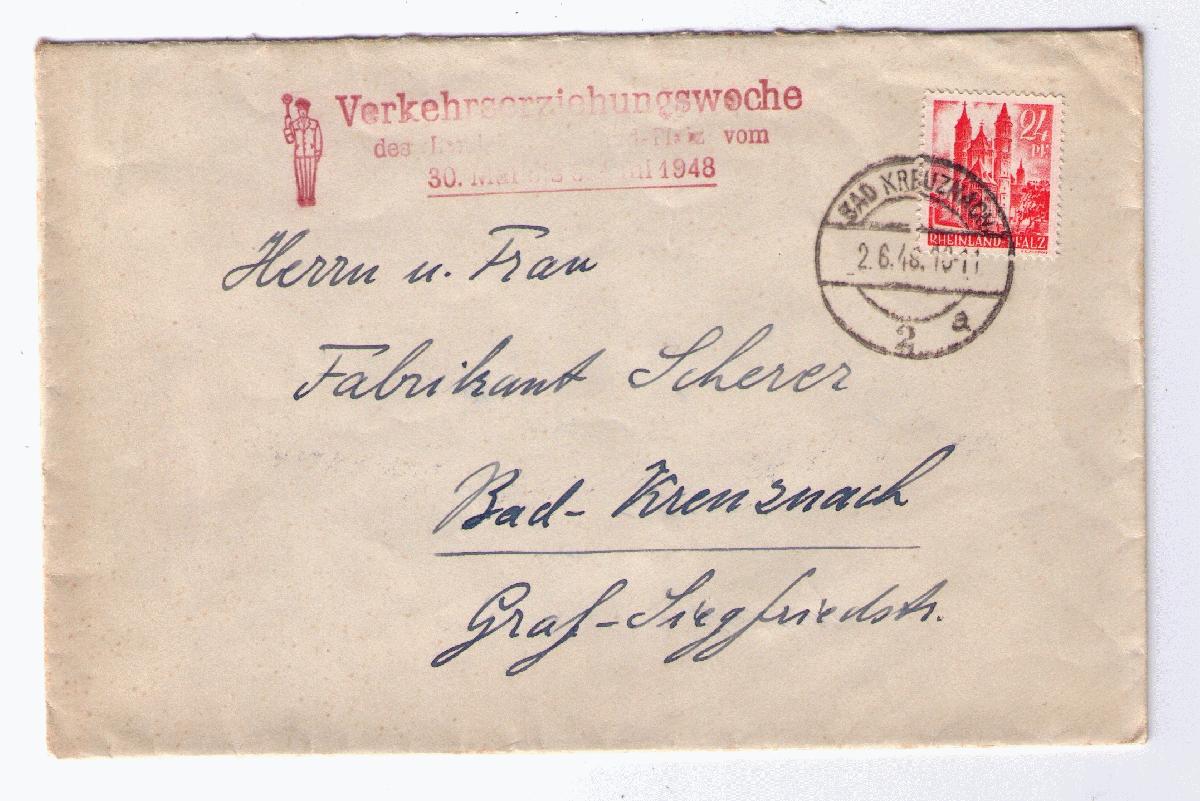 Verkehrserziehungswoche
des vom
30. 1948
24
PF
RHEINLAND-PFALZ
BAD KREUZNACH
2.6.48. 10-11
2 a
Herrn u. Frau
Fabrikant Scherer
Bad-Kreuznach
Graf-Siegfriedstr.